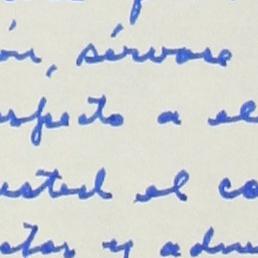 ón, sírvase
respecto a el
usted el co
ctar y adm